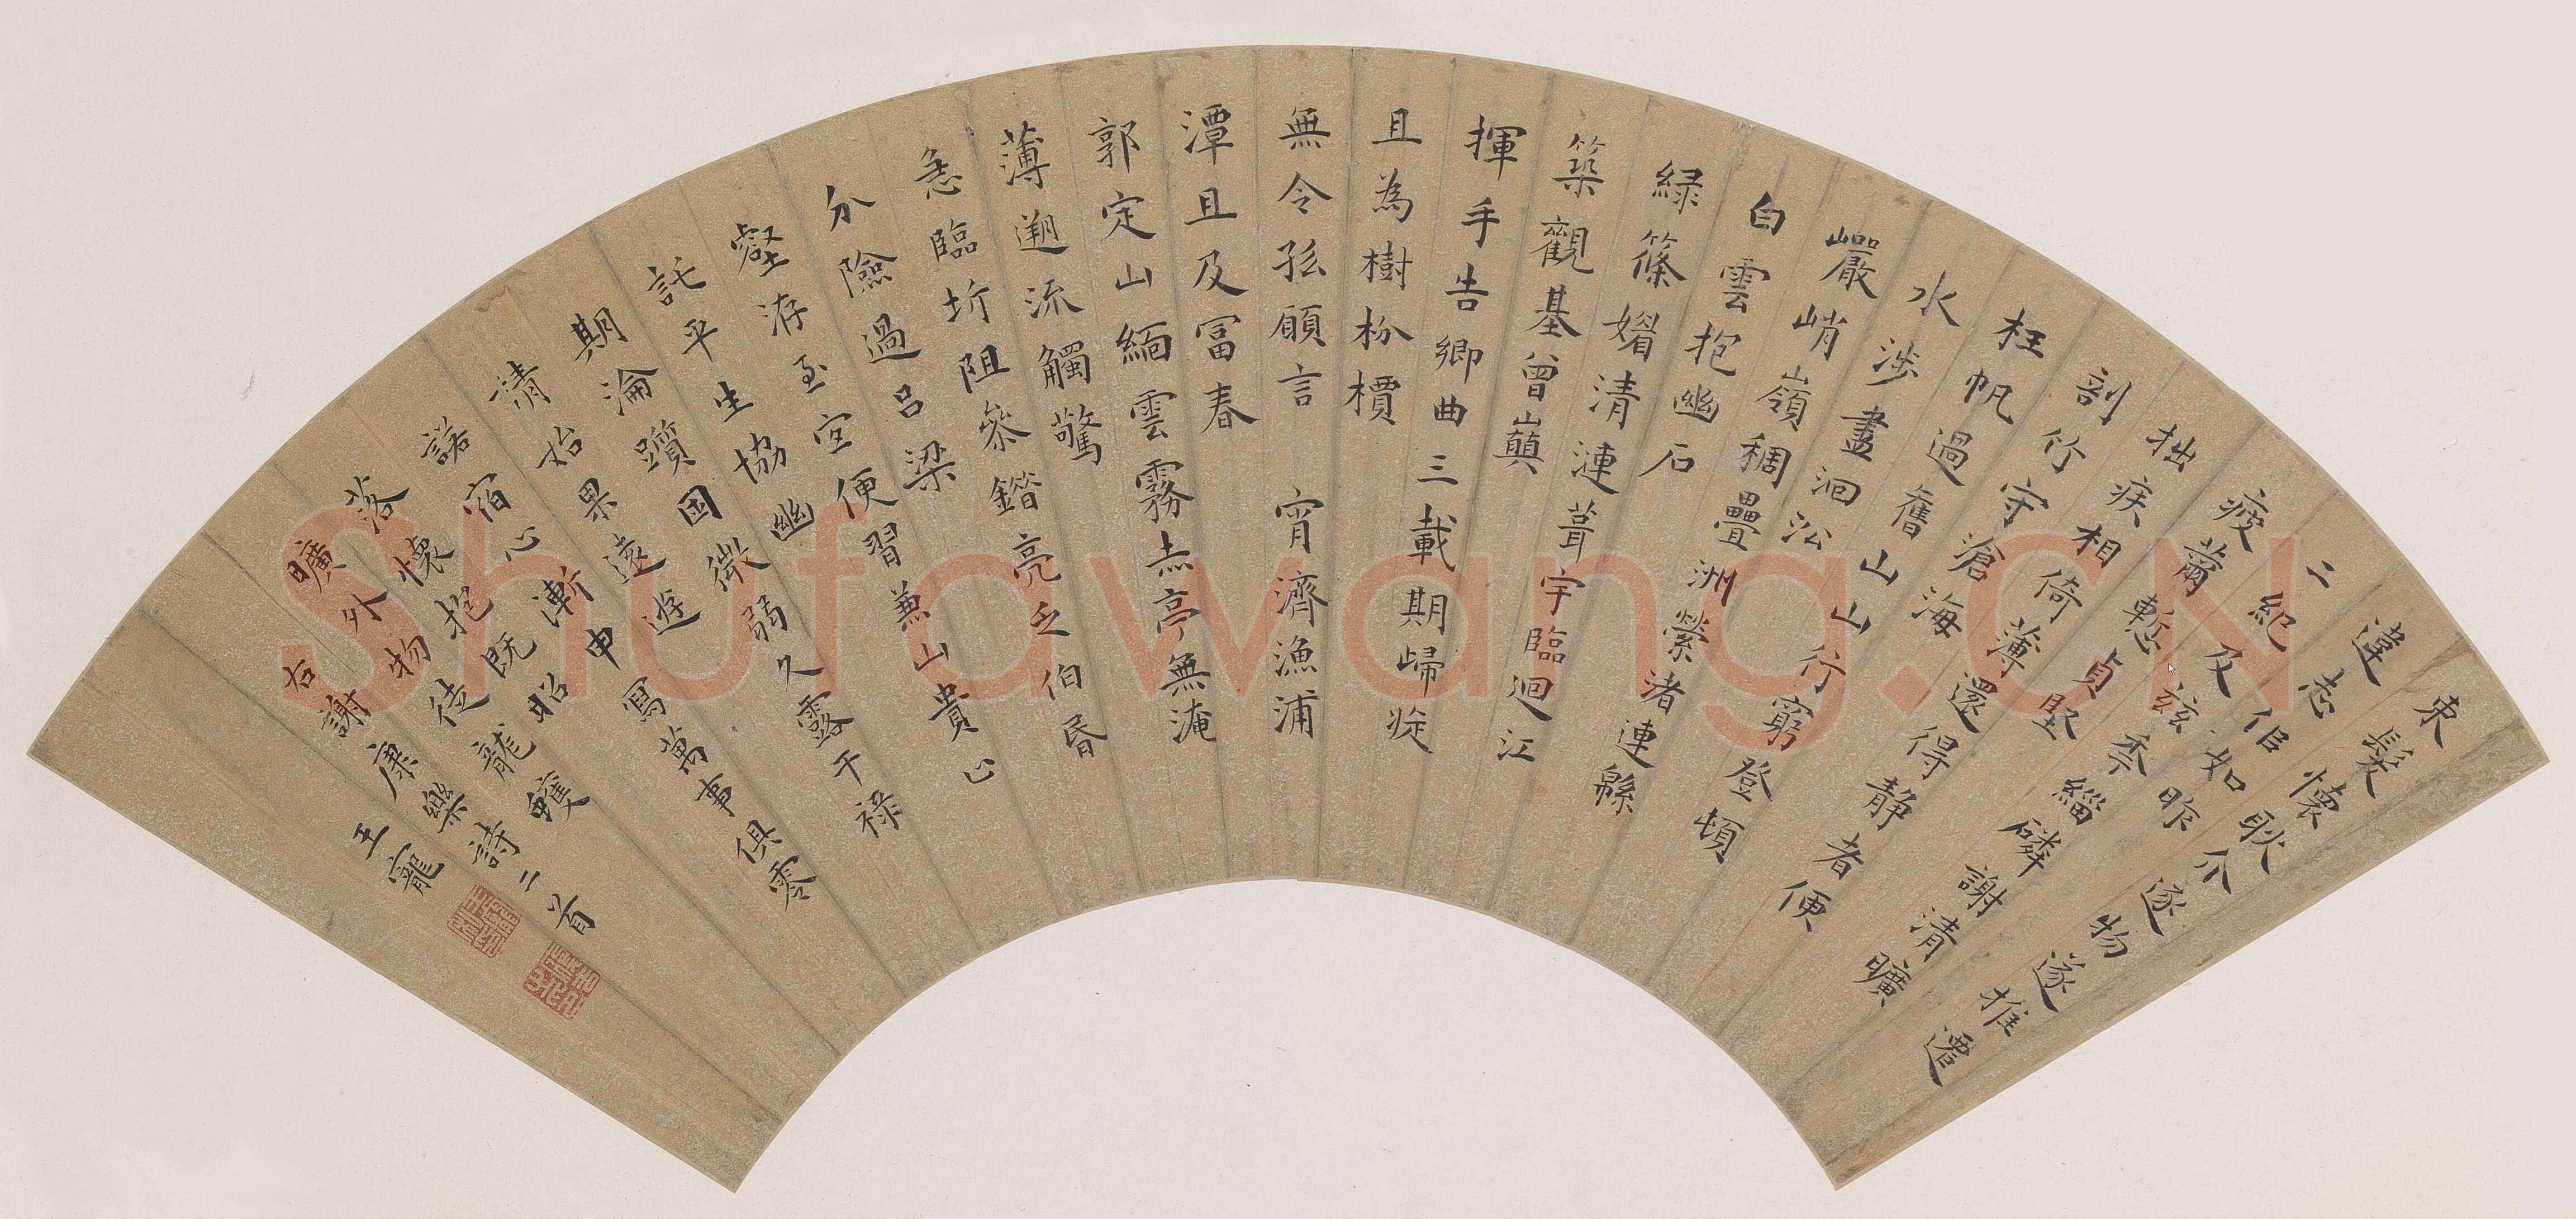 束髮懷耿介逐物遂推遷
違志佀如昨
二紀及茲秊緇磷謝清曠
疲薾慙貞堅
拙疾相倚薄還得靜者便
剖竹守滄海
枉帆過舊山山行窮登頓
水涉盡洄㳂
巖峭嶺稠疊洲縈渚連緜
白雲抱幽石
緑篠媚清漣葺宇臨迴江
築觀基曾巔
揮手告鄉曲三載期歸旋
且為樹枌檟
無令孤願言 宵濟漁浦
潭旦及富春
郭定山緬雲霧赤亭無淹
薄遡流觸驚
急臨圻阻參錯亮乏伯昏
分險過呂梁
壑洊至宜便習兼山貴止
託平生協幽
期淪躓困微弱久露干祿
請始果遠遊
諾宿心漸申寫萬事俱零
落懷抱既昭
曠外物徒龍蠖
右謝康樂詩二首
王寵
Shufawang.CN